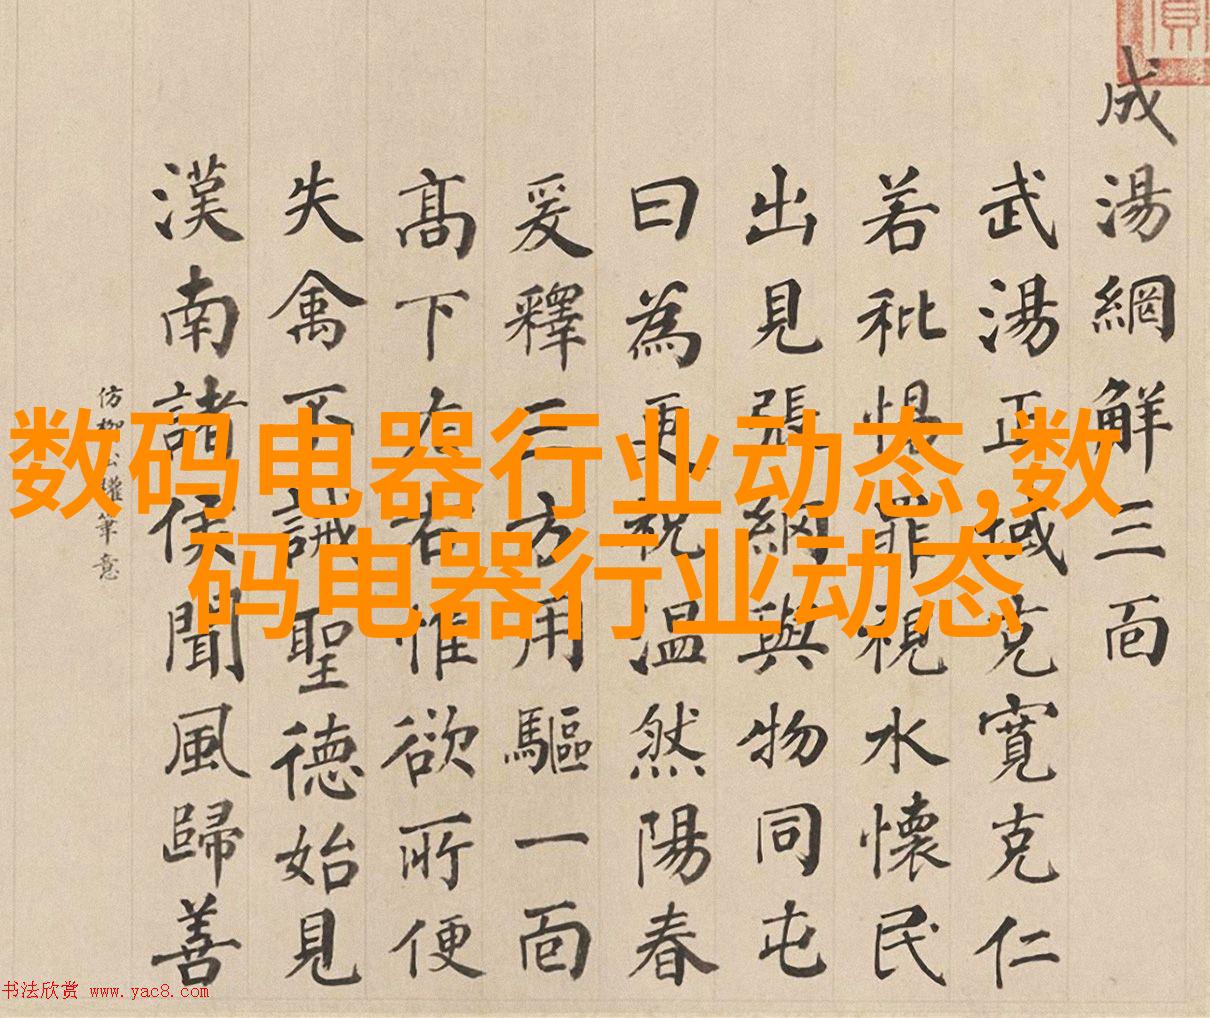 成湯網解三面
武湯正域克寬克仁
若秕惧罪視水懷民
出見張網與物同屯
曰為更祝温然陽春
爰釋三方用驅一面
髙下左右惟欲所便
失禽不誡聖德始見
漢南諸侯聞風歸善
仿柳公權筆意
数码电器行业动态,数
码电器行业动态
书法欣赏 www.yac8.com